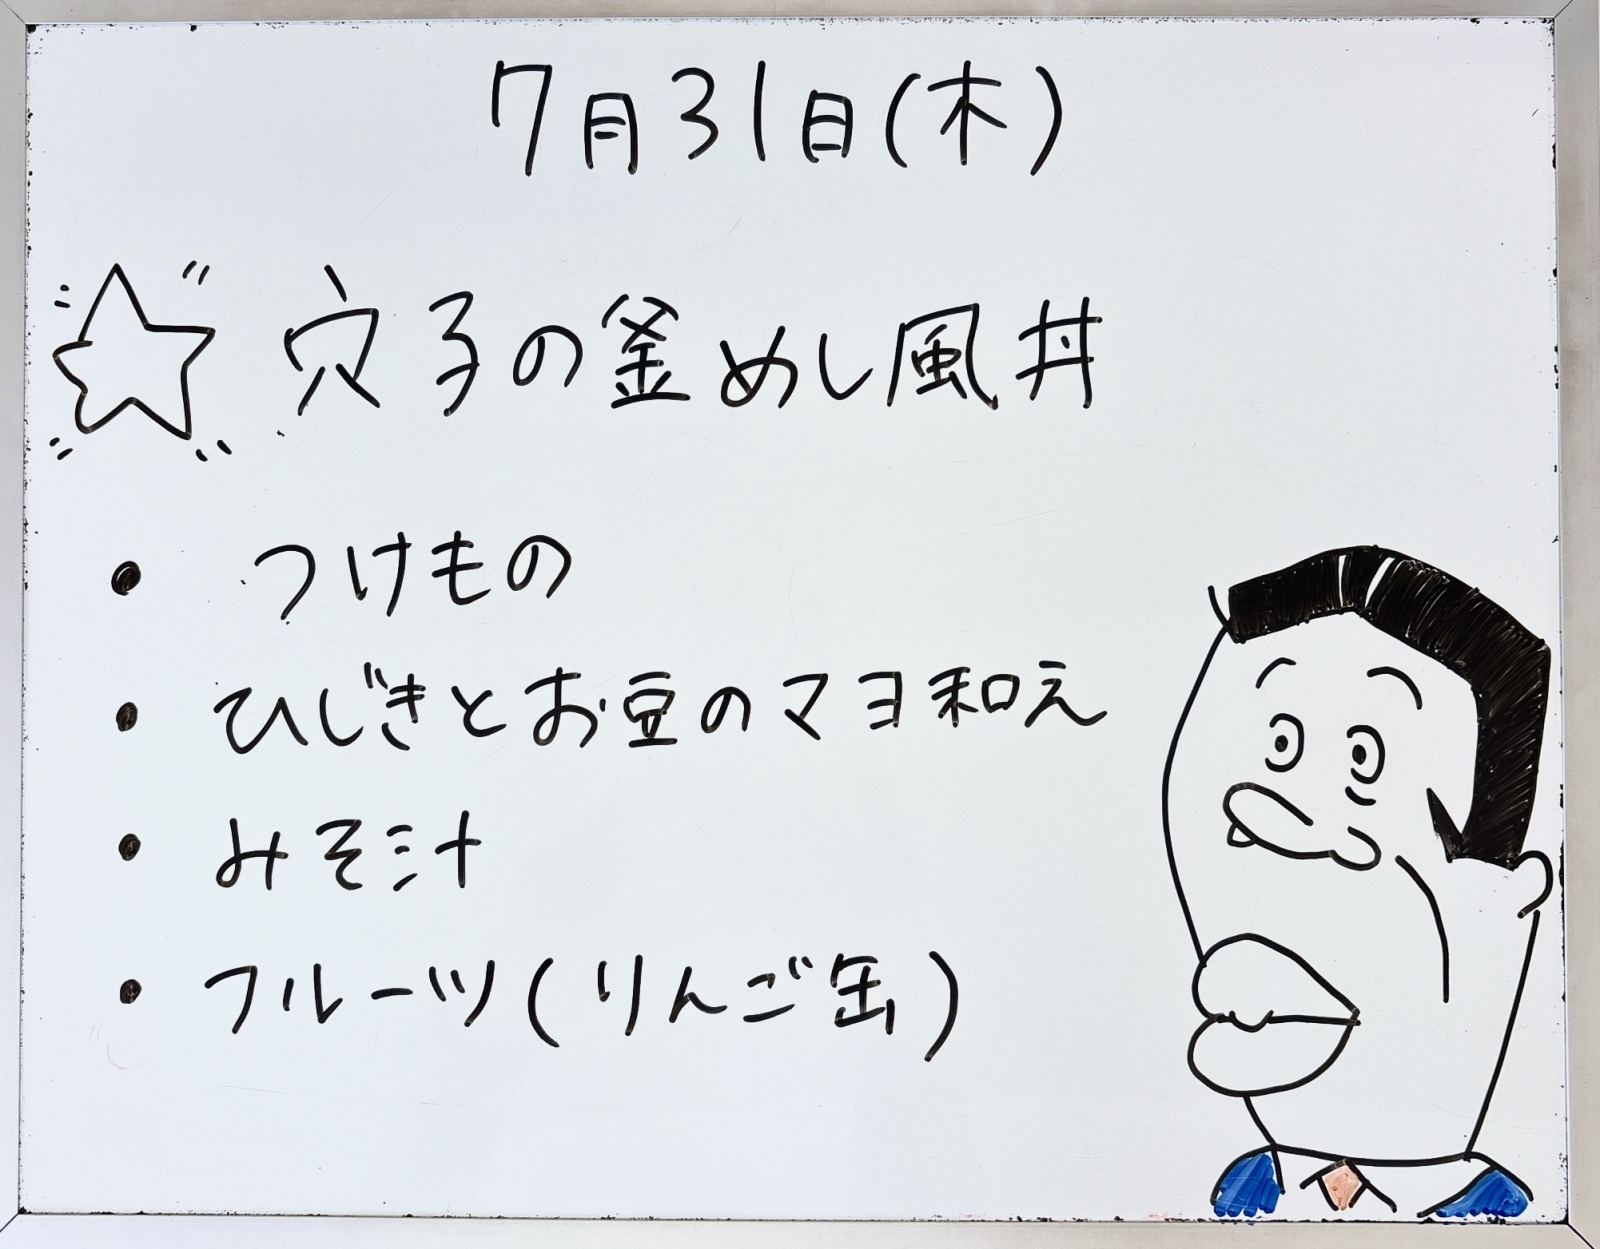 7月31日(木)
☆ 穴子の釜めし風丼
・ つけもの
・ ひじきとお豆のマヨ和え
・ みそ汁
・ フルーツ(りんご缶)